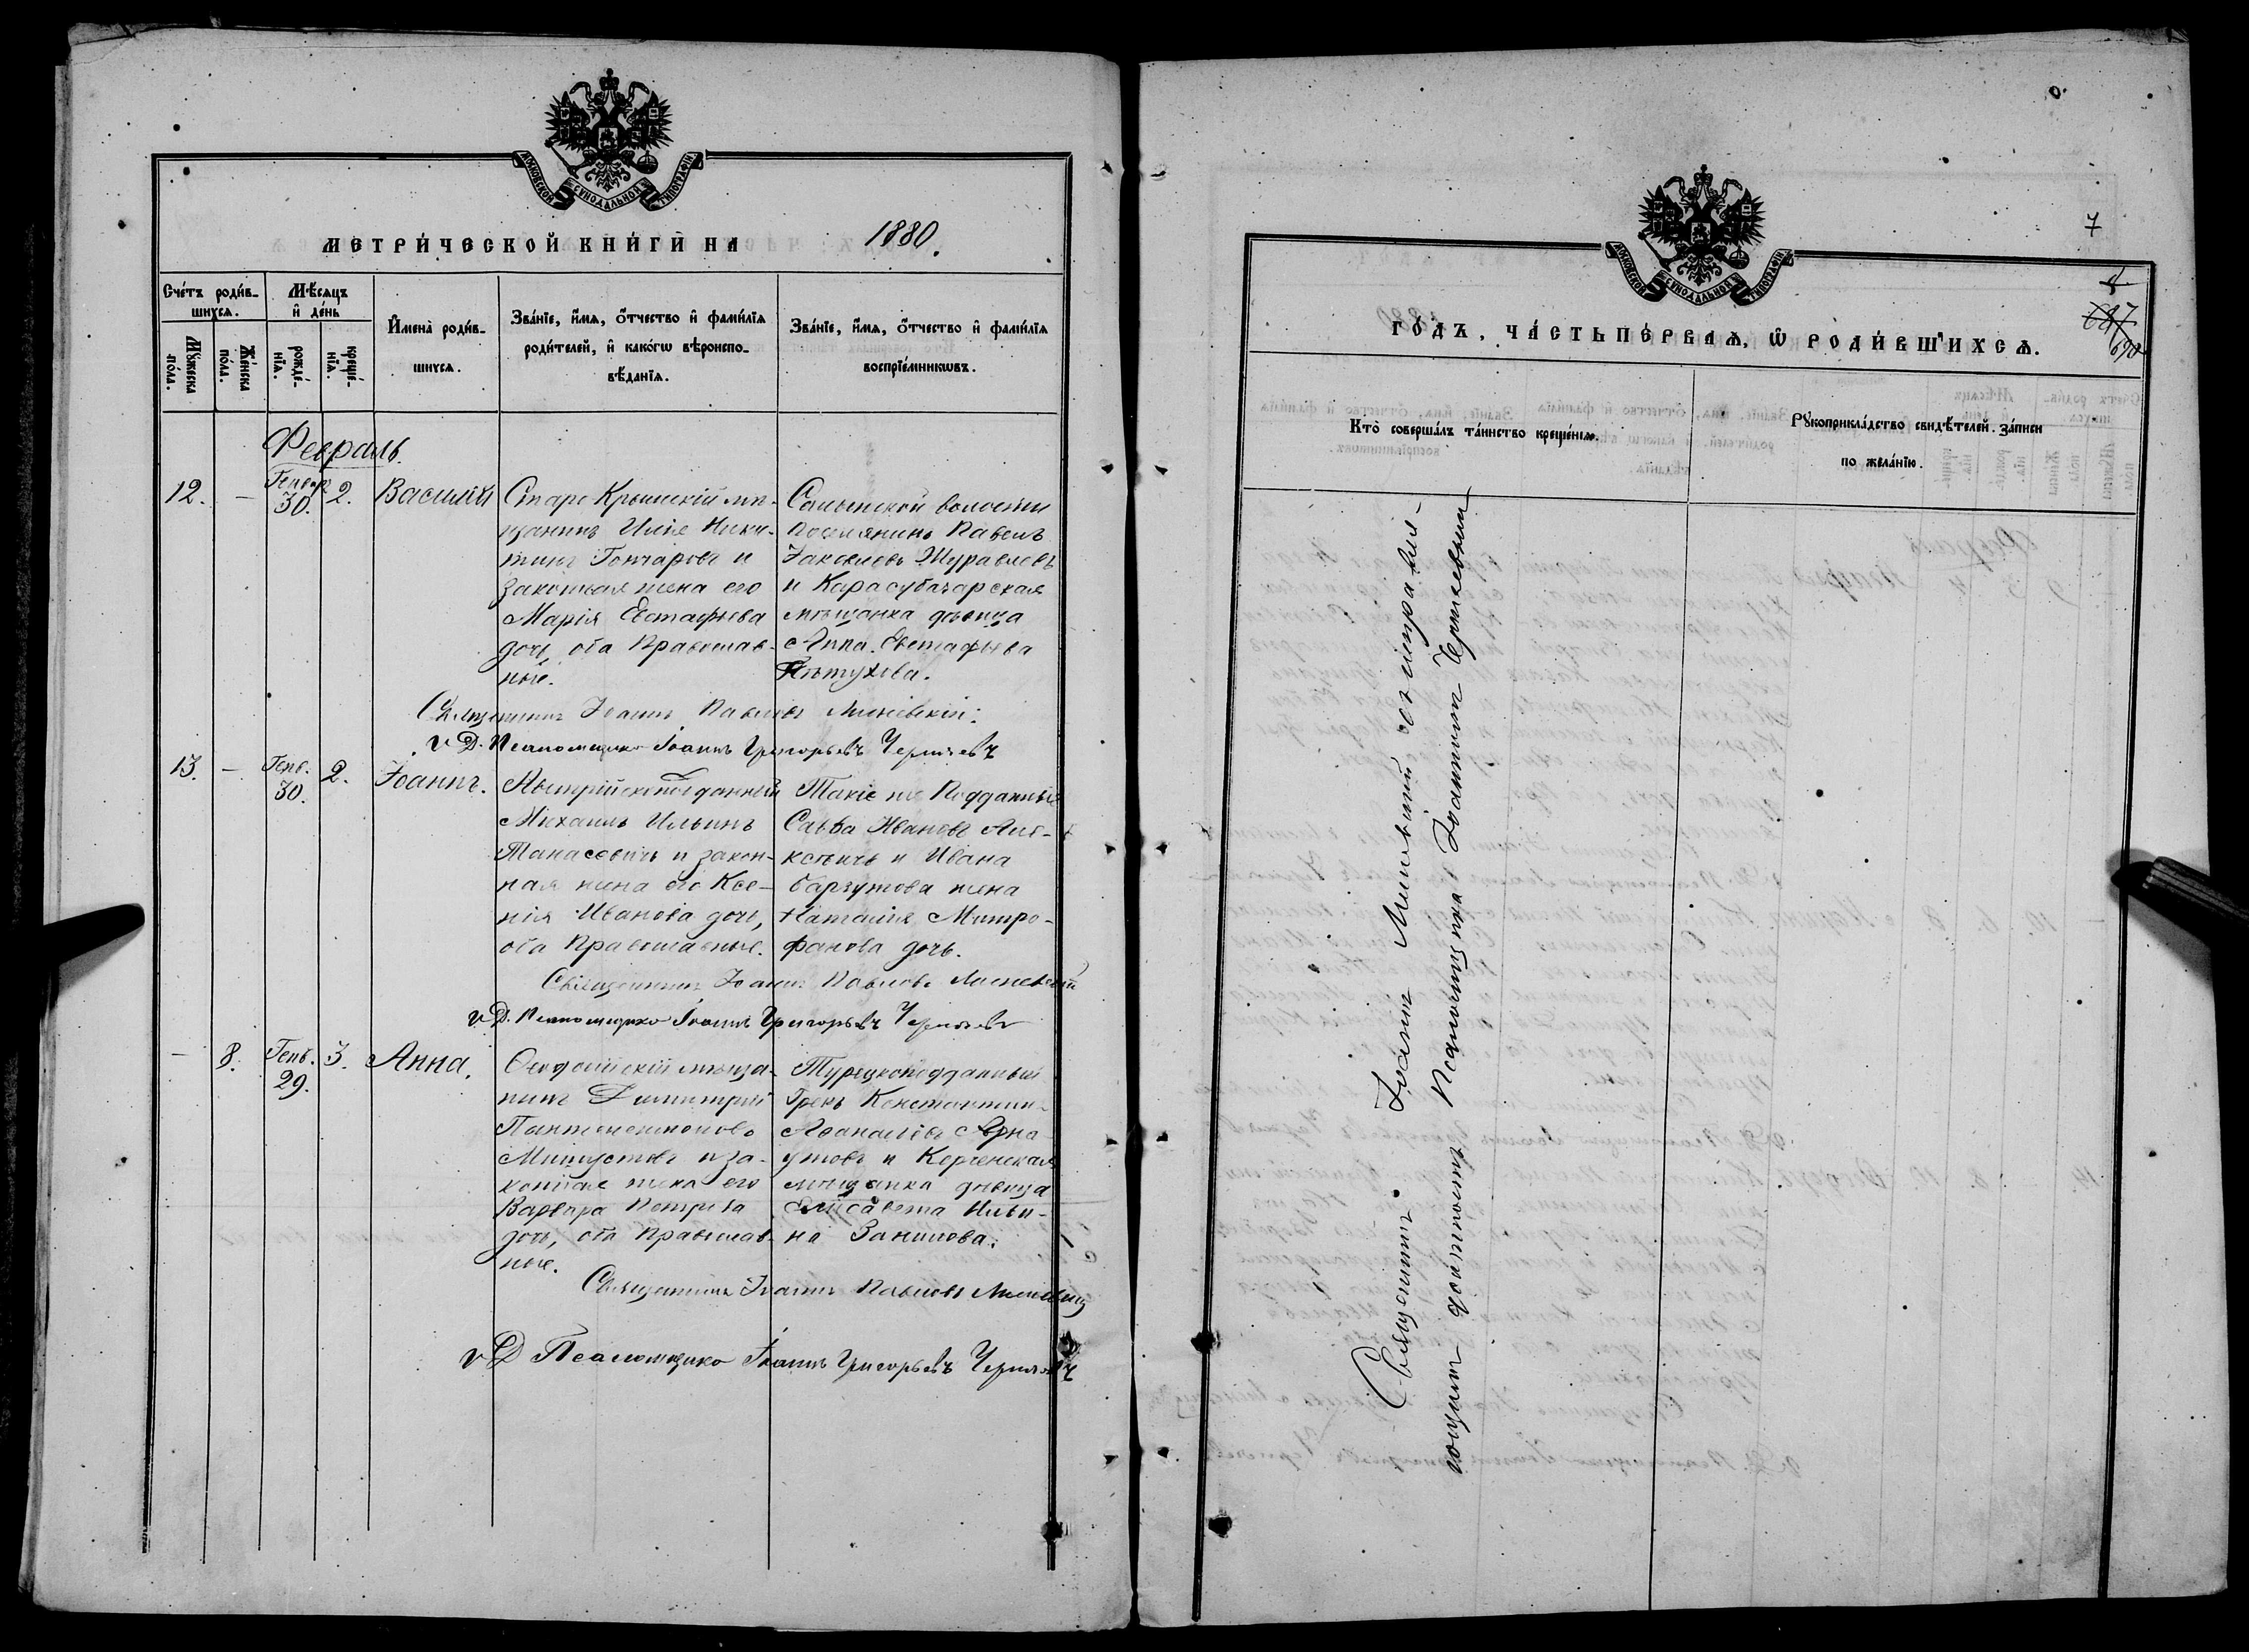 МОСКОВСКОЙ СѴНОДАЛЬНОЙ ТИПОГРАФІИ
МЕТРИ́ЧЕСКОЙ КНИ́ГИ НА 1880.
Сче́тъ роди́в-
шихсѧ.
Мѣ́сяцъ
и҆ де́нь
Мꙋ́жеска
по́ла.
Же́нска
по́ла.
рожде́-
нїѧ.
креще́-
нїѧ.
И҆мена̀ роди́в-
шихсѧ.
Зва́нїе, и҆́мѧ, ѻ҆́тчество и҆ фами́лїѧ
роди́телей, и҆ како́гѡ вѣроиспо-
вѣ́данїѧ.
Зва́нїе, и҆́мѧ, ѻ҆́тчество и҆ фами́лїѧ
воспрїе́мникѡвъ.
Февраль.
12. — Генвар. 30. 2. Василій
Старо Крымскій мѣ-
щанинъ Илія Ники-
тинъ Гончаровъ и
законная жена его
Марія Евстафьева
дочь, оба Православ-
ные.
волости
поселянинъ Павелъ
Яковлевъ Журавлевъ
и Карасубазарская
мѣщанка дѣвица
Анна Евстафьева
Пѣтухова.
Священникъ Іоаннъ Павловъ
и Д. Псаломщика Іоаннъ Григорьевъ Черняевъ
13. — Генв. 30. 2. Іоаннъ.
Австрійскоподданный
Михаилъ Ильинъ
Танасевичъ и закон-
ная жена его Ксе-
нія Иванова дочь,
оба Православные.
Такіе же Подданные
Савва Ивановъ Але-
ксѣичъ и Ивана
жена
Наталія Митро-
фанова дочь.
Священникъ Іоаннъ Павловъ
и Д. Псаломщика Іоаннъ Григорьевъ Черняевъ
— 8. Генв. 29. 3. Анна.
Ѳеодосійскій мѣща-
нинъ Димитрій
Пантелеимоновъ
и за-
конная жена его
Варвара Петрова
дочь, оба Православ-
ные.
Турецкоподданный
Грекъ Константинъ
Аѳанасіевъ Арна-
утовъ и Керченская
мѣщанка дѣвица
Елисавета Ильи-
на Занилова.
Священникъ Іоаннъ Павловъ
и Д Псаломщика Іоаннъ Григорьевъ Черняевъ
7
687
690
МОСКОВСКОЙ СѴНОДАЛЬНОЙ ТИПОГРАФІИ
ГО́ДЪ, ЧА́СТЬ ПЕ́РВАѦ, Ѿ РОДИ́ВШИХСѦ.
Кто̀ соверша́лъ та́инство креще́нїѧ.
Рꙋкоприкла́дство свидѣ́телей за́писи
по жела́нїю.
Священникъ Іоаннъ съ исправля-
ющимъ должность Псаломщика Іоанномъ Черняевымъ